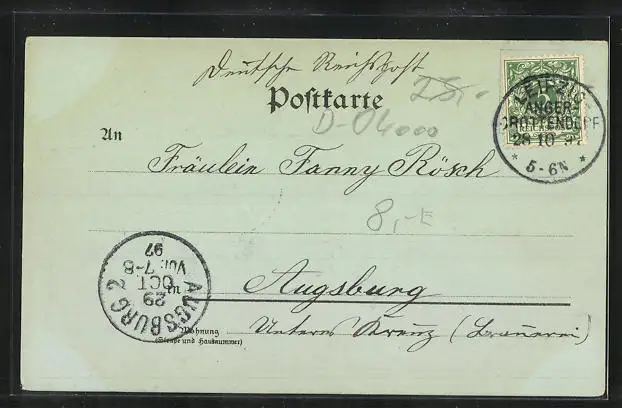 Deutsche Reichspost
Postkarte
D-04000
LEIPZIG-
ANGER-
CROTTENDORF
28 10 97
* 5-6N *
An
Fräulein Fanny Rösch
8,-E
in Augsburg
AUGSBURG 2
29
OCT
Vor. 7-8
97
Wohnung
(Straße und Hausnummer)
Unteres Kreuz (Brauerei)